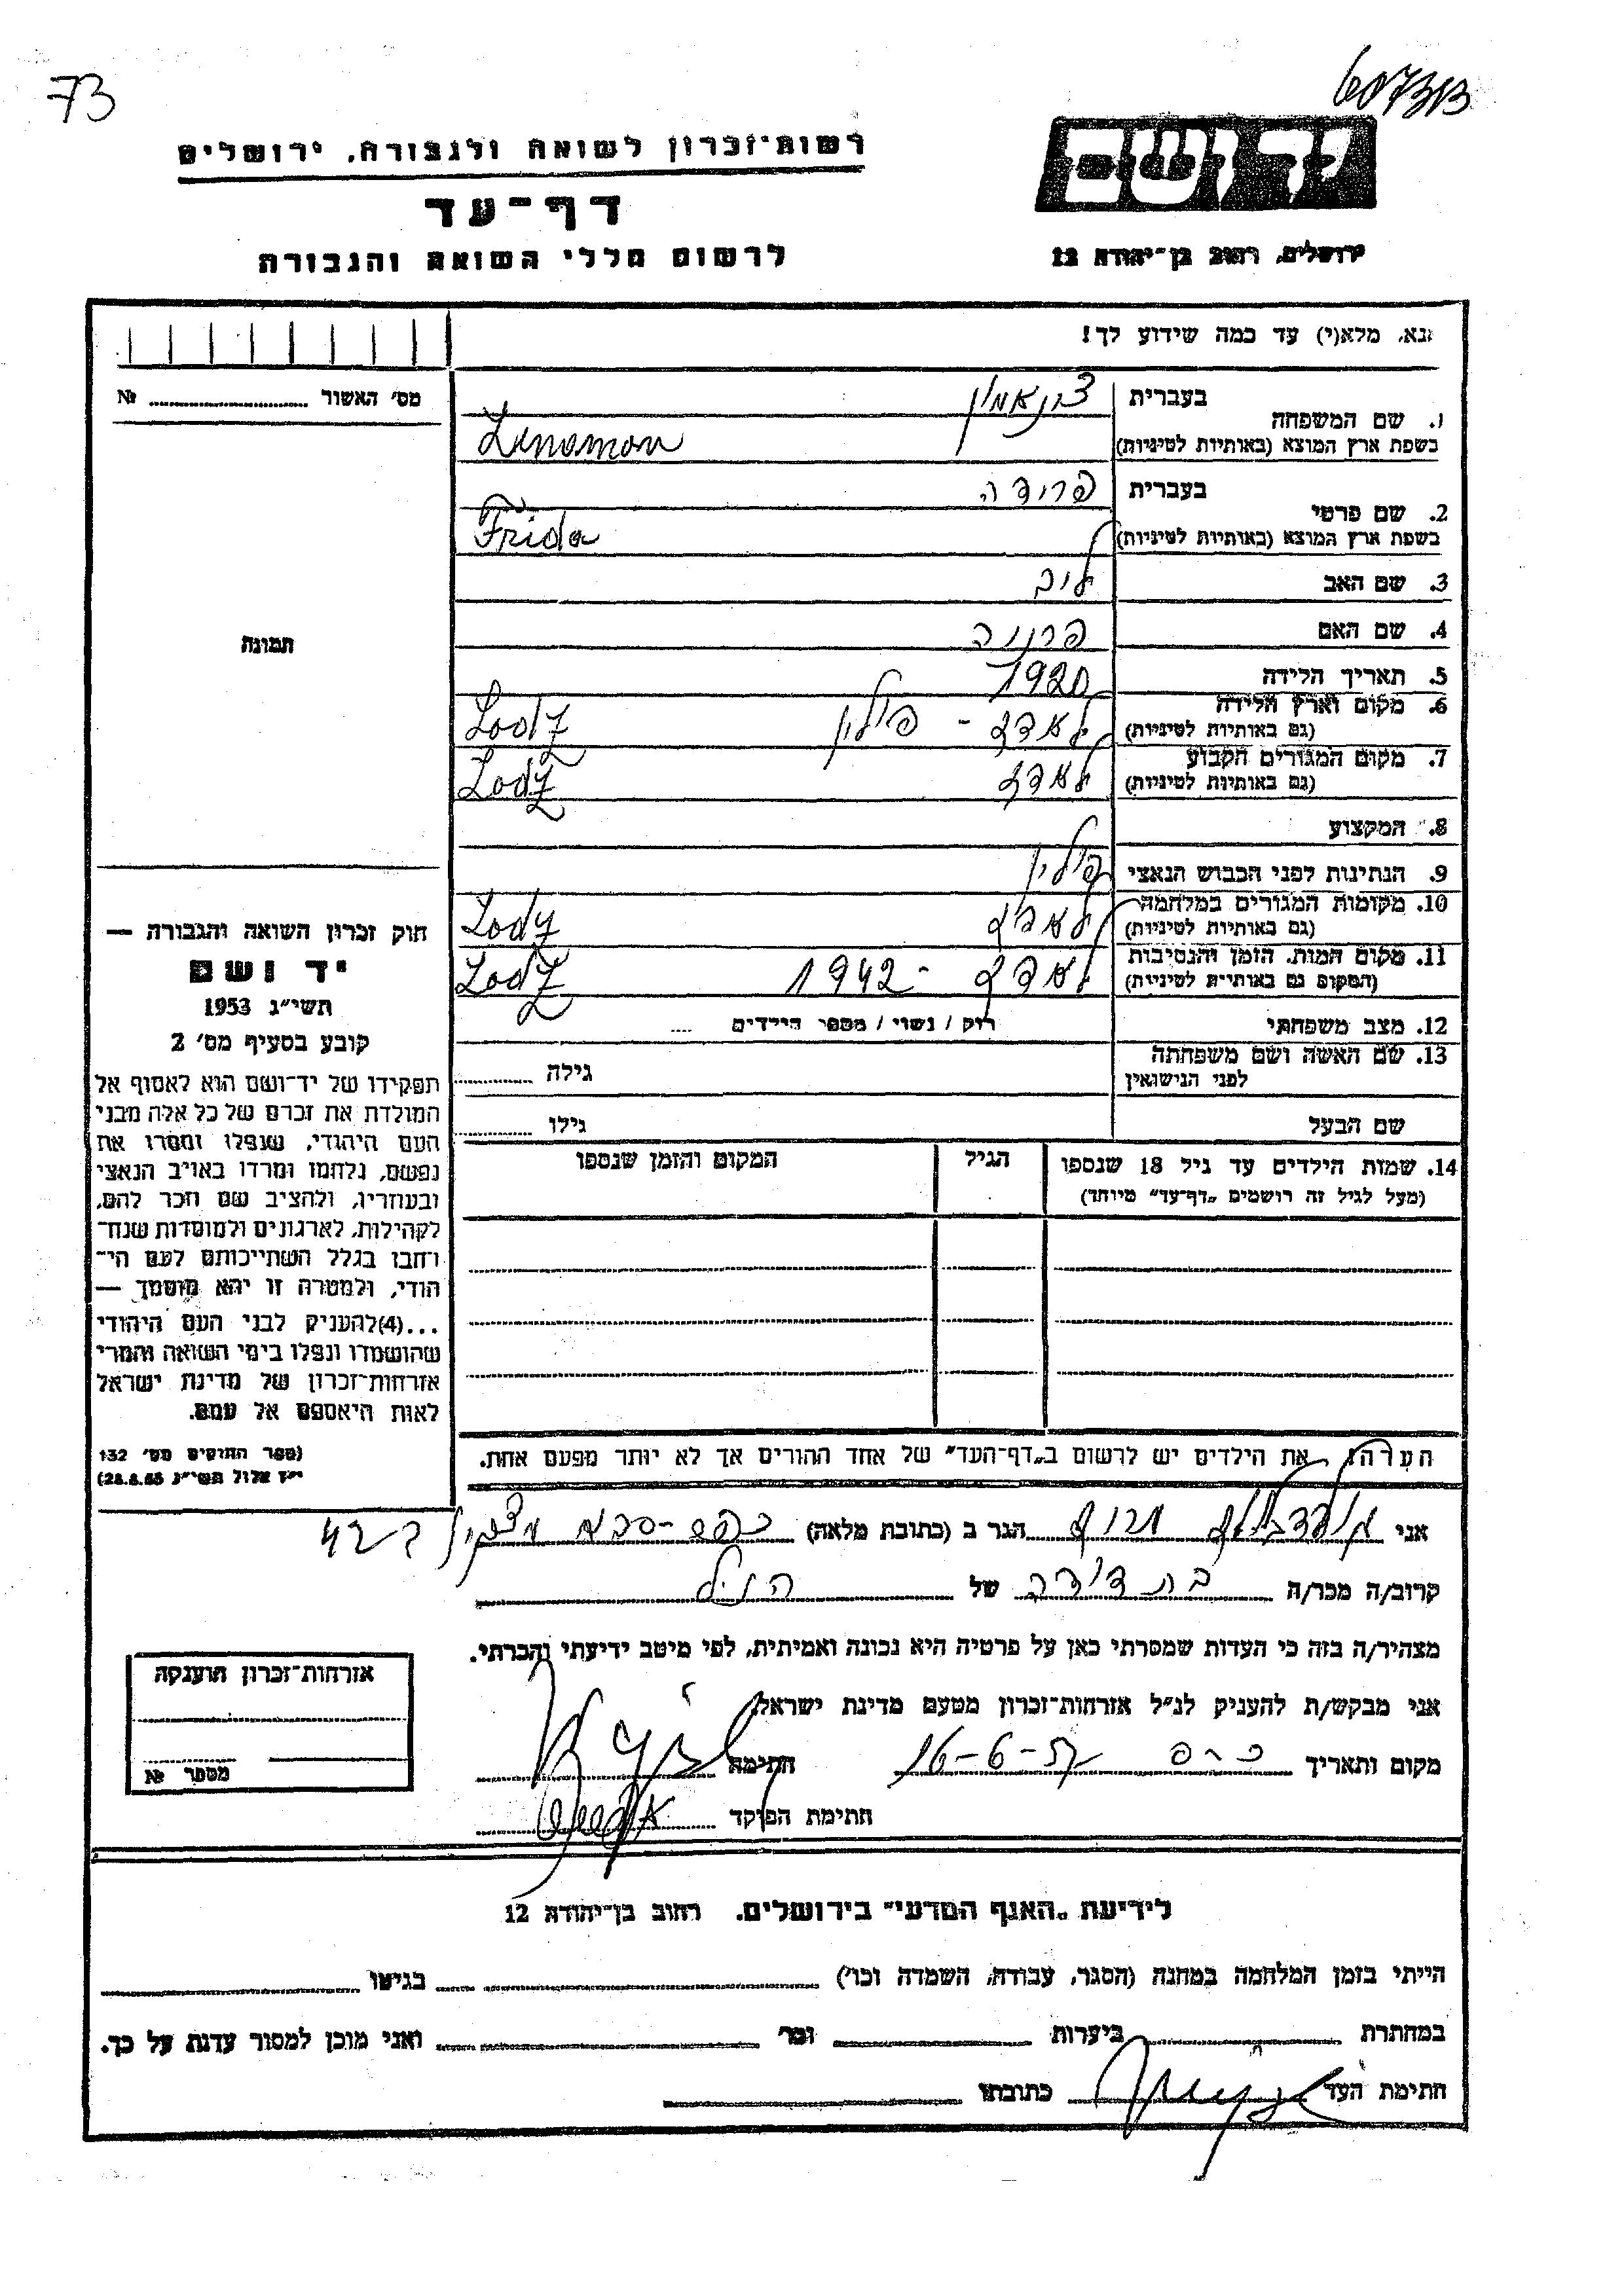 73
607313
רשות־זכרון לשואה ולגבורה, ירושלים
דף־עד
לרשום חללי השואה והגבורה
יד ושם
ירושלים, רחוב בן־יהודה 12
נא, מלא(י) עד כמה שידוע לך!
מס׳ האשור № 
1. שם המשפחה בעברית
בשפת ארץ המוצא (באותיות לטיניות)
Zinamon
2. שם פרטי בעברית פרידה
בשפת ארץ המוצא (באותיות לטיניות) Frida
3. שם האב ליב
4. שם האם
5. תאריך הלידה 1920
6. מקום וארץ הלידה לאדז - פולין Lodz
(גם באותיות לטיניות)
7. מקום המגורים הקבוע לאדז Lodz
(גם באותיות לטיניות)
8. המקצוע
9. הנתינות לפני הכבוש הנאצי פולין
10. מקומות המגורים במלחמה לאדז Lodz
(גם באותיות לטיניות)
11. מקום המות, הזמן והנסיבות לאדז - 1942 Lodz
(המקום גם באותיות לטיניות)
12. מצב משפחתי רוק / נשוי / מספר הילדים
13. שם האשה ושם משפחתה
לפני הנישואין גילה
שם הבעל גילו
14. שמות הילדים עד גיל 18 שנספו הגיל המקום והזמן שנספו
(מעל לגיל זה רושמים „דף־עד” מיוחד)
תמונה
חוק זכרון השואה והגבורה —
יד ושם
תשי״ג 1953
קובע בסעיף מס׳ 2
תפקידו של יד־ושם הוא לאסוף אל
המולדת את זכרם של כל אלה מבני
העם היהודי, שנפלו ומסרו את
נפשם, נלחמו ומרדו באויב הנאצי
ובעוזריו, ולהציב שם וזכר להם,
לקהילות, לארגונים ולמוסדות שנח־
רבו בגלל השתייכותם לעם הי־
הודי, ולמטרה זו יהא מוסמך —
...(4)להעניק לבני העם היהודי
שהושמדו ונפלו בימי השואה והמרי
אזרחות־זכרון של מדינת ישראל
לאות היאספם אל עמם.
(ספר החוקים מס׳ 132
י״ז אלול תשי״ג 28.8.53)
הערה: את הילדים יש לרשום ב„דף־העד” של אחד ההורים אך לא יותר מפעם אחת.
אני הגר ב (כתובת מלאה) כפר-סבא
קרוב/ה מכר/ה בת דודה של הנ״ל
מצהיר/ה בזה כי העדות שמסרתי כאן על פרטיה היא נכונה ואמיתית, לפי מיטב ידיעתי והכרתי.
אני מבקש/ת להעניק לנ״ל אזרחות־זכרון מטעם מדינת ישראל
מקום ותאריך 16-6- חתימה
חתימת הפוקד
אזרחות־זכרון הוענקה
מספר №
לידיעת „האגף המדעי” בירושלים, רחוב בן־יהודה 12
הייתי בזמן המלחמה במחנה (הסגר, עבודה, השמדה וכו׳) בגיטו
במחתרת ביערות וכו׳ ואני מוכן למסור עדות על כך.
חתימת העד כתובתו